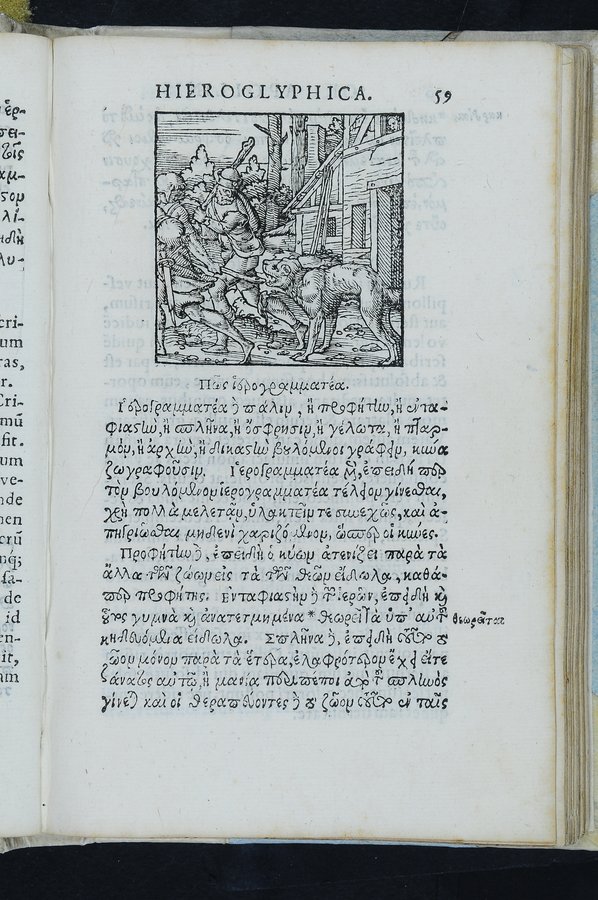 ει-
αμ-
λί-
λυ-
cri-
um
ras,
r.
Cri-
mũ
fit.
um
ve-
nde
men
crũ
nq;
fa-
de
id
en-
it,
am
HIEROGLYPHICA. 59
Πῶς ἱερογραμματέα.
Ἱερογραμματέα δὲ πάλιν, ἢ προφήτην, ἢ ἐντα-
φιαστὴν, ἢ σπλῆνα, ἢ ὄσφρησιν, ἢ γέλωτα, ἢ πταρ-
μὸν, ἢ ἀρχὴν, ἢ δικαστὴν βουλόμενοι γράφειν, κύνα
ζωγραφοῦσιν. Ἱερογραμματέα μὲν, ἐπειδήπερ
τὸν βουλόμενον ἱερογραμματέα τέλειον γίνεσθαι,
χρὴ πολλὰ μελετᾶν, ὑλακτεῖν τε συνεχῶς, καὶ ἀ-
πηγριῶσθαι μηδενὶ χαριζόμενον, ὥσπερ οἱ κύνες.
Προφήτην δὲ, ἐπειδὴ ὁ κύων ἀτενίζει παρὰ τὰ
ἄλλα τῶν ζώων εἰς τὰ τῶν θεῶν εἴδωλα, καθά-
περ προφήτης. Ἐνταφιαστὴν δὲ τῶν ἱερῶν, ἐπειδὴ καὶ
οὗτος γυμνὰ καὶ ἀνατετμημένα * θεωρεῖ τὰ ὑπ' αὐτοῦ
θεωρεῖται
κηδευόμενα εἴδωλα. Σπλῆνα δὲ, ἐπειδὴ τοῦτο τὸ
ζῶον μόνον παρὰ τὰ ἕτερα, ἐλαφρότερον ἔχει εἴτε
θάνατος αὐτῷ, ἢ μανία περιπέσοι ἀπὸ τοῦ σπληνὸς
γίνεται καὶ οἱ θεραπεύοντες δὲ τὸ ζῶον τοῦτο ἐν ταῖς